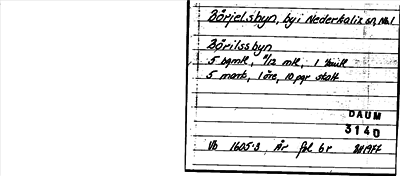 Börjelsbyn, by i Nederkalix sn, Nb.l
Börilssbyn
5 bgmk, 9/12 mk, 1
5 mark, 1 öre, 10 pgr skatt
DAUM
3140
Vb 1605:3 År fol 6 r